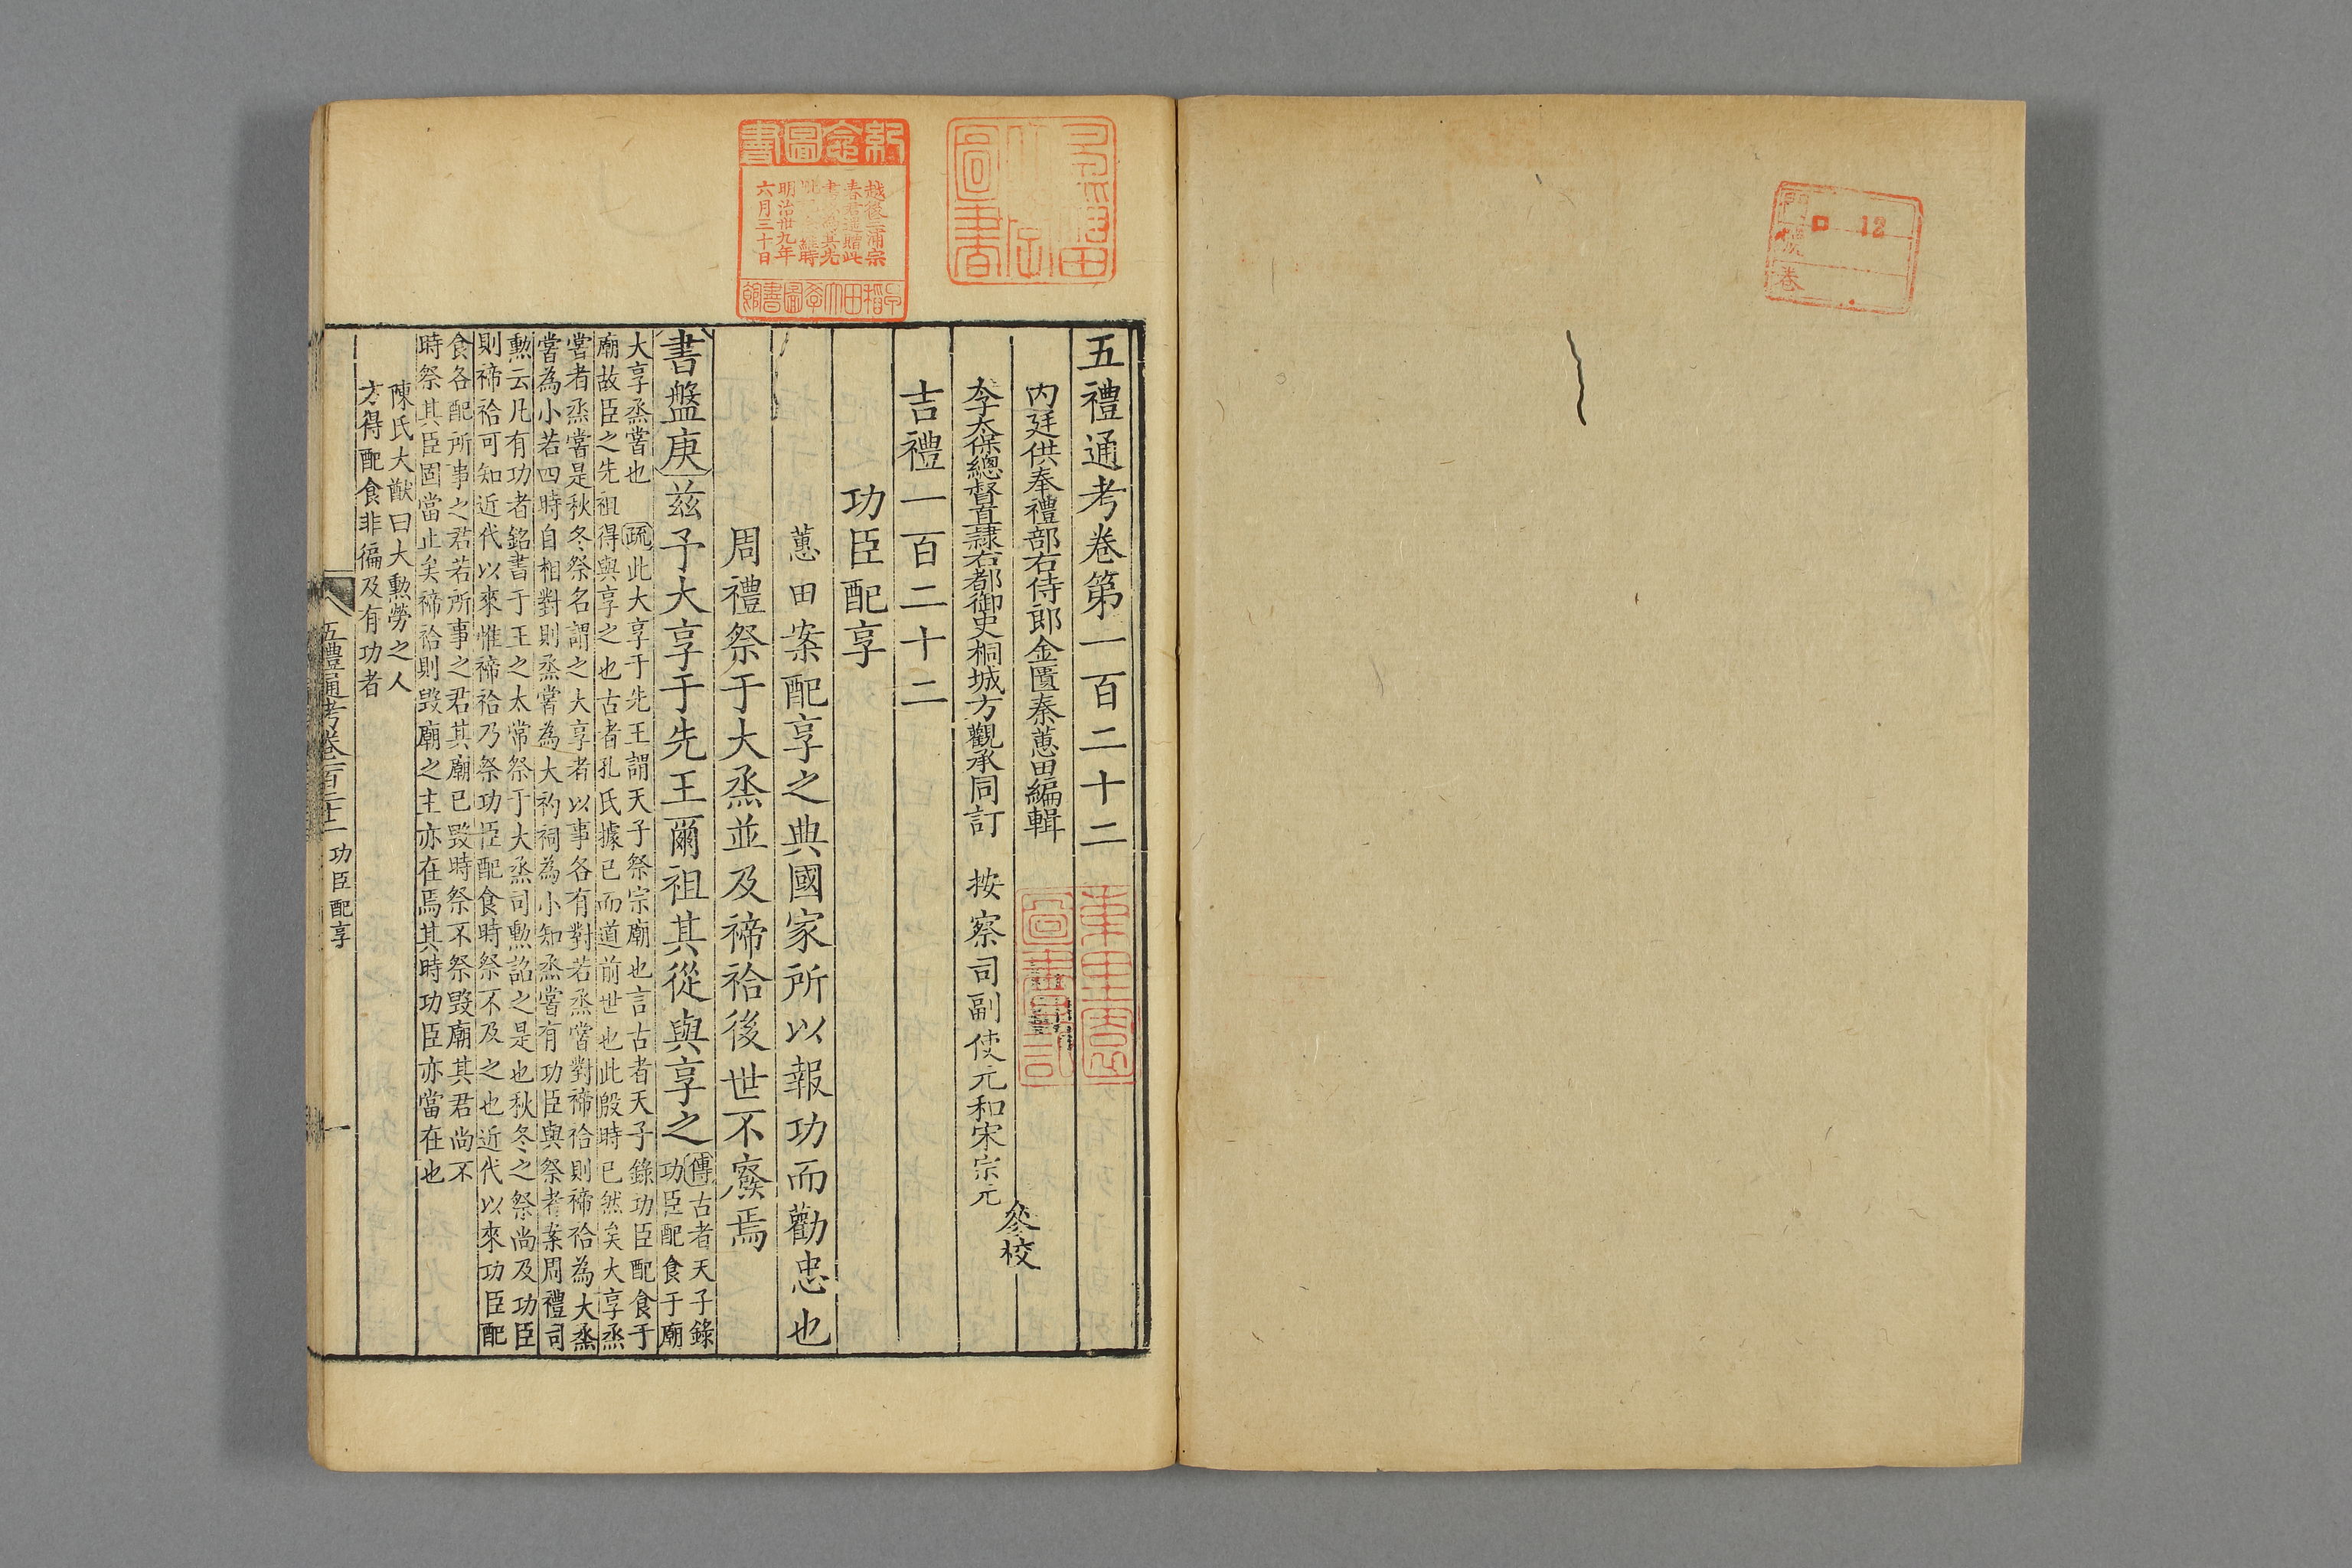 12
卷
五禮通考卷第一百二十二
内廷供奉禮部右侍郎金匱秦蕙田編輯
太子太保總督直隸右都御史桐城方觀承同訂 按察司副使元和宋宗元
參校
吉禮一百二十二
功臣配享
蕙田案配享之典國家所以報功而勸忠也
周禮祭于大烝並及禘祫後世不廢焉
書盤庚茲予大享于先王爾祖其從與享之
傳古者天子錄
功臣配食于廟
大享烝嘗也 疏此大享于先王謂天子祭宗廟也言古者天子錄功臣配食于
廟故臣之先祖得與享之也古者孔氏據已而道前世也此殷時已然矣大享烝
嘗者烝嘗是秋冬祭名謂之大享者以事各有對若烝嘗對禘祫則禘祫為大烝
嘗為小若四時自相對則烝嘗為大礿祠為小知烝嘗有功臣與祭者案周禮司
勲云凡有功者銘書于王之太常祭于大烝司勲詔之是也秋冬之祭尚及功臣
則禘祫可知近代以來惟禘祫乃祭功臣配食時祭不及之也近代以來功臣配
食各配所事之君若所事之君其廟已毀時祭不祭毀廟其君尚不
時祭其臣固當止矣禘祫則毀廟之主亦在焉其時功臣亦當在也
陳氏大猷曰大勲勞之人
方得配食非徧及有功者
五禮通考卷一百二十二 功臣配享 一
紀念圖書
越後三浦宗
春君遺贈此
明治卅九年
六月三十日
早稻田大學圖書館
圖書